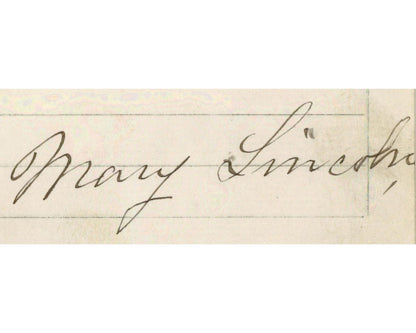 Mary Lincoln,